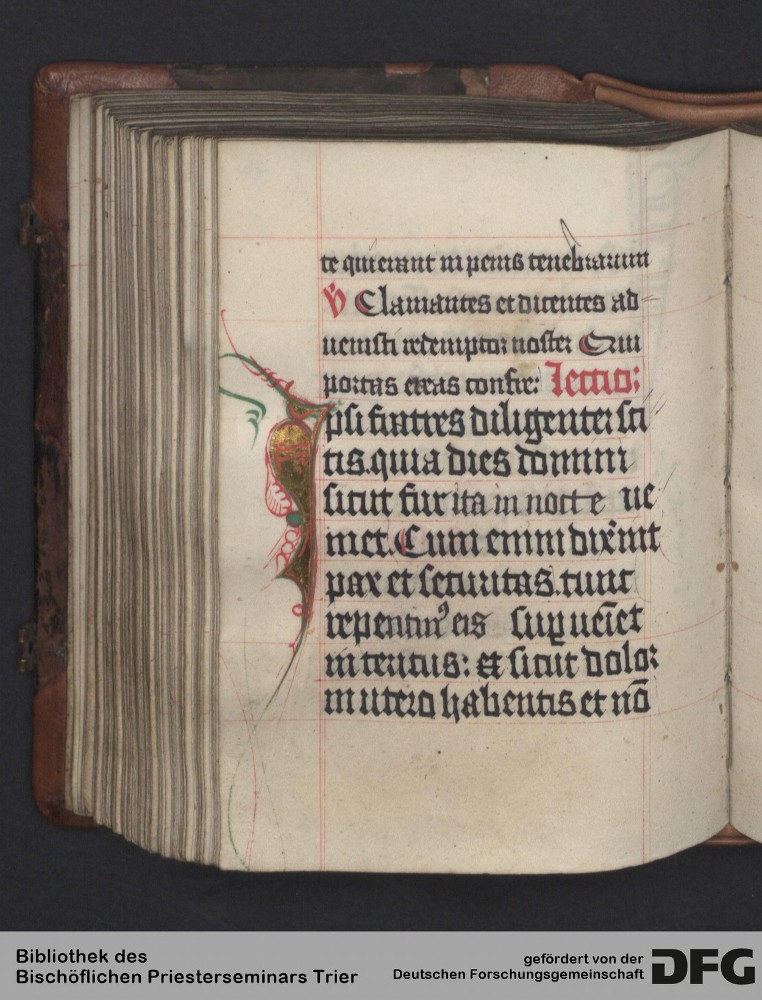 te qui erant in penis tenebrarum
V Clamantes et dicentes ad-
uenisti redemptor noster Qui
portas ereas confre: lectio:
Ipsi fratres diligenter sci
tis. quia dies domini
sicut fur ita in nocte ue
niet. Cum enim dixĩnt
pax et securitas. tunc
repentinꝰ eis sup̱ueĩet
interitus: et sicut dolor
in utero habentis et nō
Bibliothek des
Bischöflichen Priesterseminars Trier
gefördert von der
Deutschen Forschungsgemeinschaft
DFG